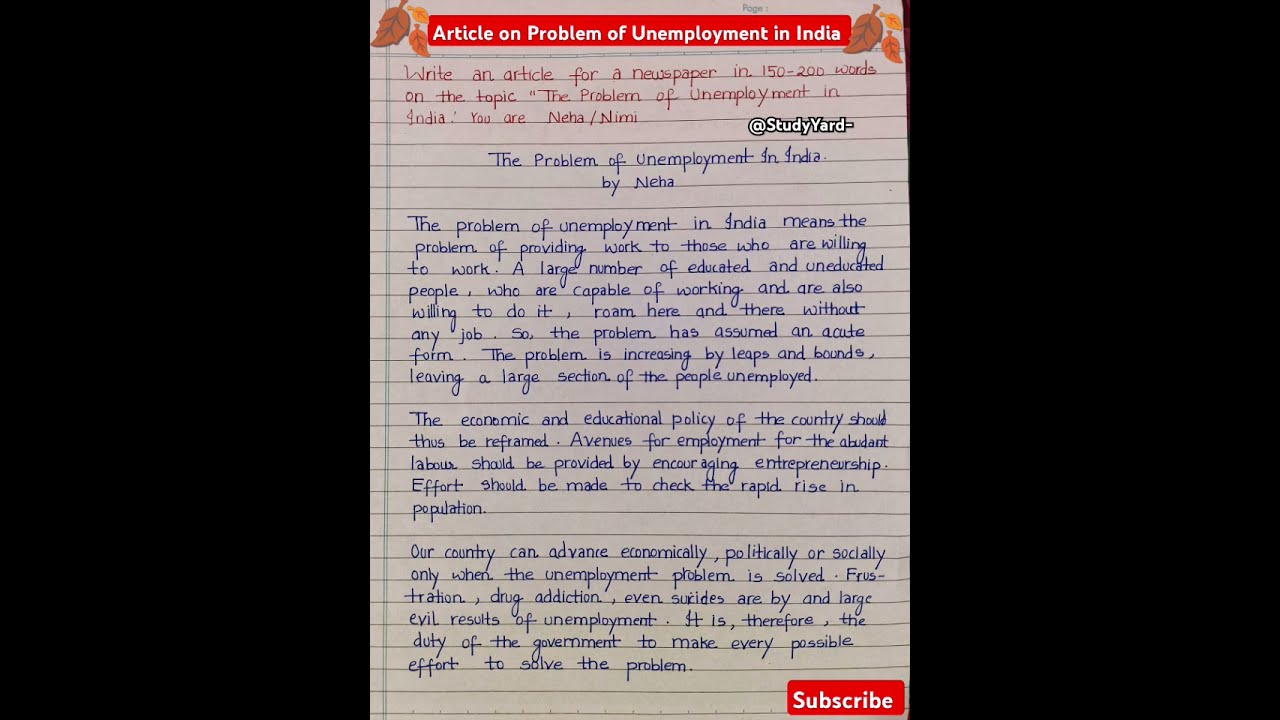 Page :
Article on Problem of Unemployment in India
Write an article for a newspaper in 150-200 words
on the topic "The Problem of Unemployment in
India.' You are Neha/Nimi
@StudyYard-
The Problem of Unemployment In India.
by Neha
The problem of unemployment in India means the
problem of providing work to those who are willing
to work. A large number of educated and uneducated
people, who are capable of working and are also
willing to do it, roam here and there without
any job. So, the problem has assumed an acute
form. The problem is increasing by leaps and bounds,
leaving a large section of the people unemployed.
The economic and educational policy of the country should
thus be reframed. Avenues for employment for the abudant
labour should be provided by encouraging entrepreneurship.
Effort should be made to check the rapid rise in
population.
Our country can advance economically, politically or socially
only when the unemployment problem is solved. Frus-
tration, drug addiction, even suicides are by and large
evil results of unemployment. It is, therefore, the
duty of the government to make every possible
effort to solve the problem.
Subscribe